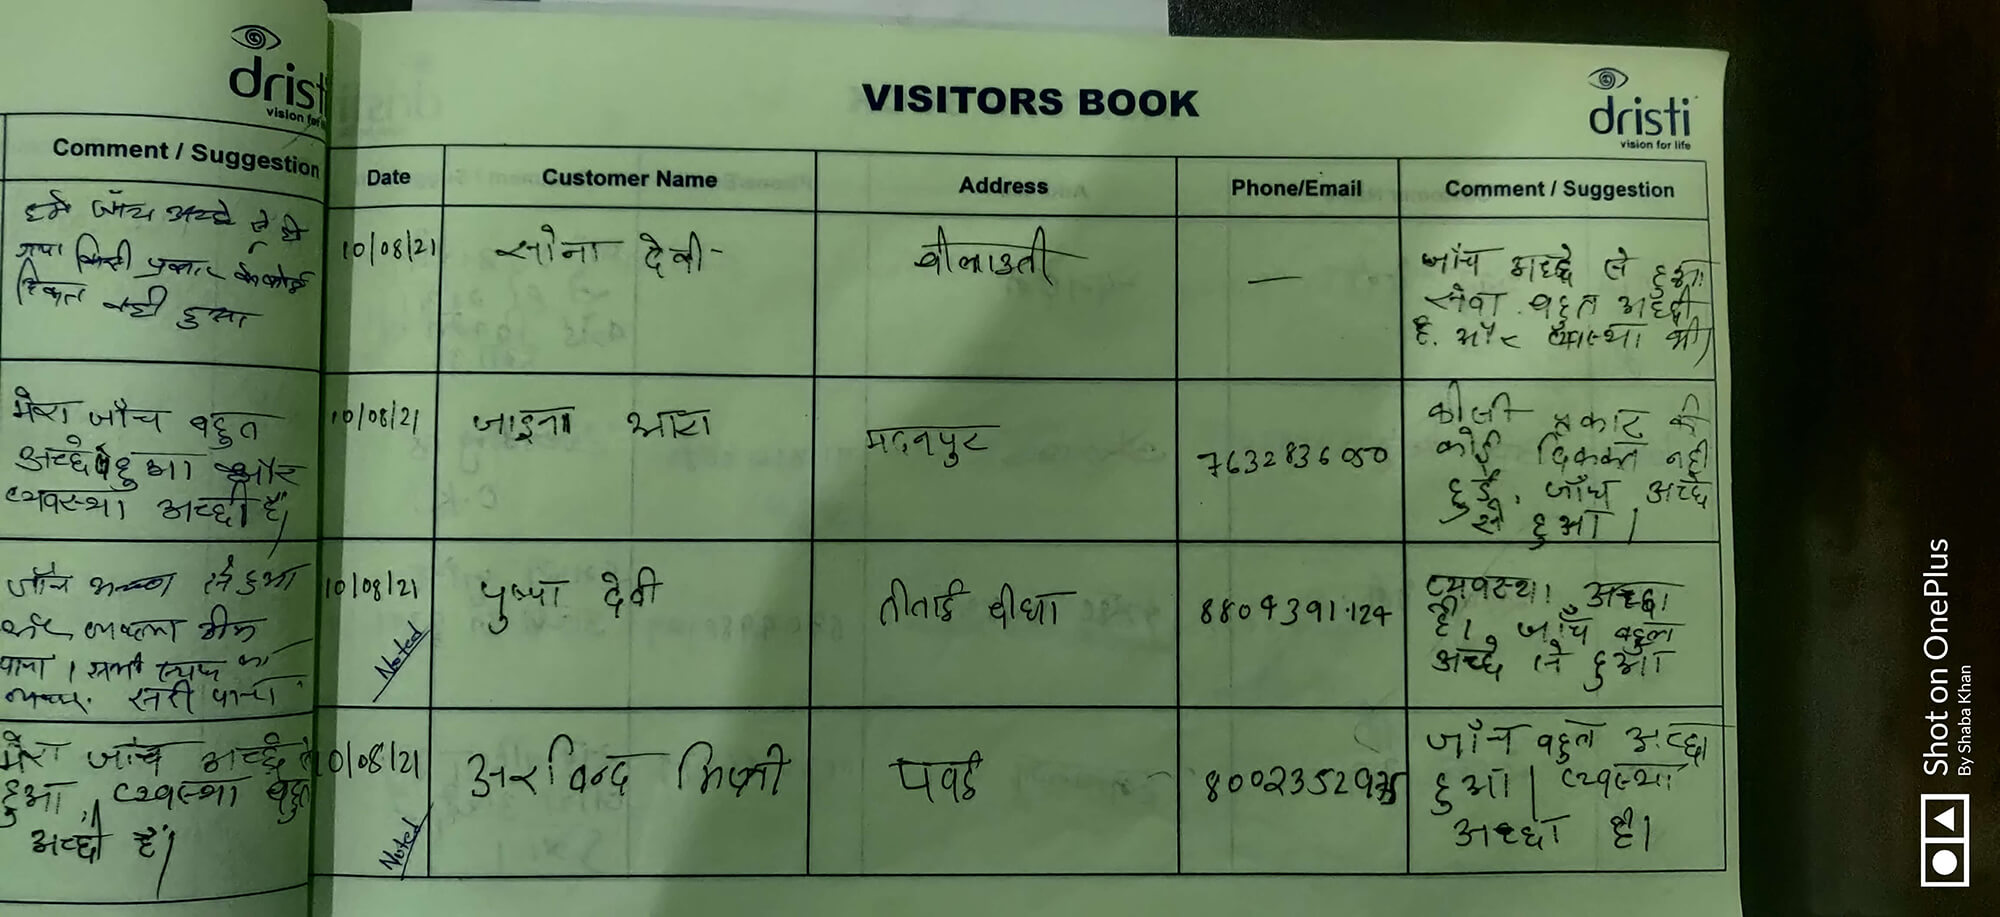 dristi
vision for
Comment / Suggestion
हमे जाँच अच्छे से हो
गया किसी प्रकार के कोई
दिक्कत नही हुआ
मेरा जाँच बहुत
अच्छे हुआ और
व्यवस्था अच्छी है।
जाँच अच्छा से हुआ
पाया।
मेरा जांच अच्छे से
हुआ, व्यवस्था बहुत
अच्छी है।
VISITORS BOOK
dristi
vision for life
Date Customer Name Address Phone/Email Comment / Suggestion
10/08/21 सोना देवी- बीलाउती —
जाँच अच्छे से हुआ
सेवा बहुत अच्छी
है. और व्यवस्था भी
10/08/21 जाइना आरा मदनपुर 7632836050
कीसी प्रकार की
कोई दिक्कत नही
हुई, जाँच अच्छे
से हुआ।
10/08/21 पुष्पा देवी तीताई बीघा 8809391124
Noted
व्यवस्था अच्छा
है। जाँच बहुत
अच्छे से हुआ
10/08/21 अरविन्द मिस्त्री पवई
Noted
जाँच बहुत अच्छा
हुआ। व्यवस्था
अच्छा है।
Shot on OnePlus
By Shaba Khan